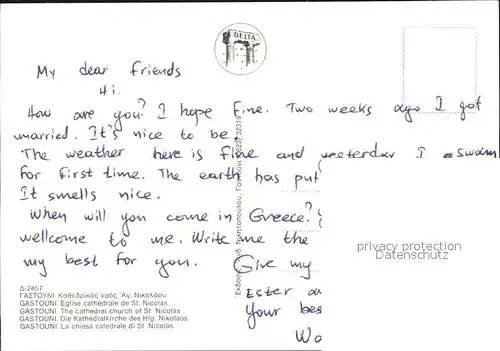 DELTA
My dear friends
Hi.
How are you? I hope fine. Two weeks ago I got
married. It's nice to be.
The weather here is fine and yesterday I swam
for first time. The earth has put
It smells nice.
When will you come in Greece?
wellcome to me. Write me the
my best for you.
Give my
Ester
your bes
Wo
privacy protection
Datenschutz
Δ-2457
ΓΑΣΤΟΥΝΗ. Καθεδρικός ναός Ἁγ. Νικολάου
GASTOUNI. Eglise cathédrale de St. Nicolas
GASTOUNI. The cathedral church of St. Nicolas
GASTOUNI. Die Kathedralkirche des Hlg. Nikolaos
GASTOUNI. La chiesa catedrale di St. Nicolas